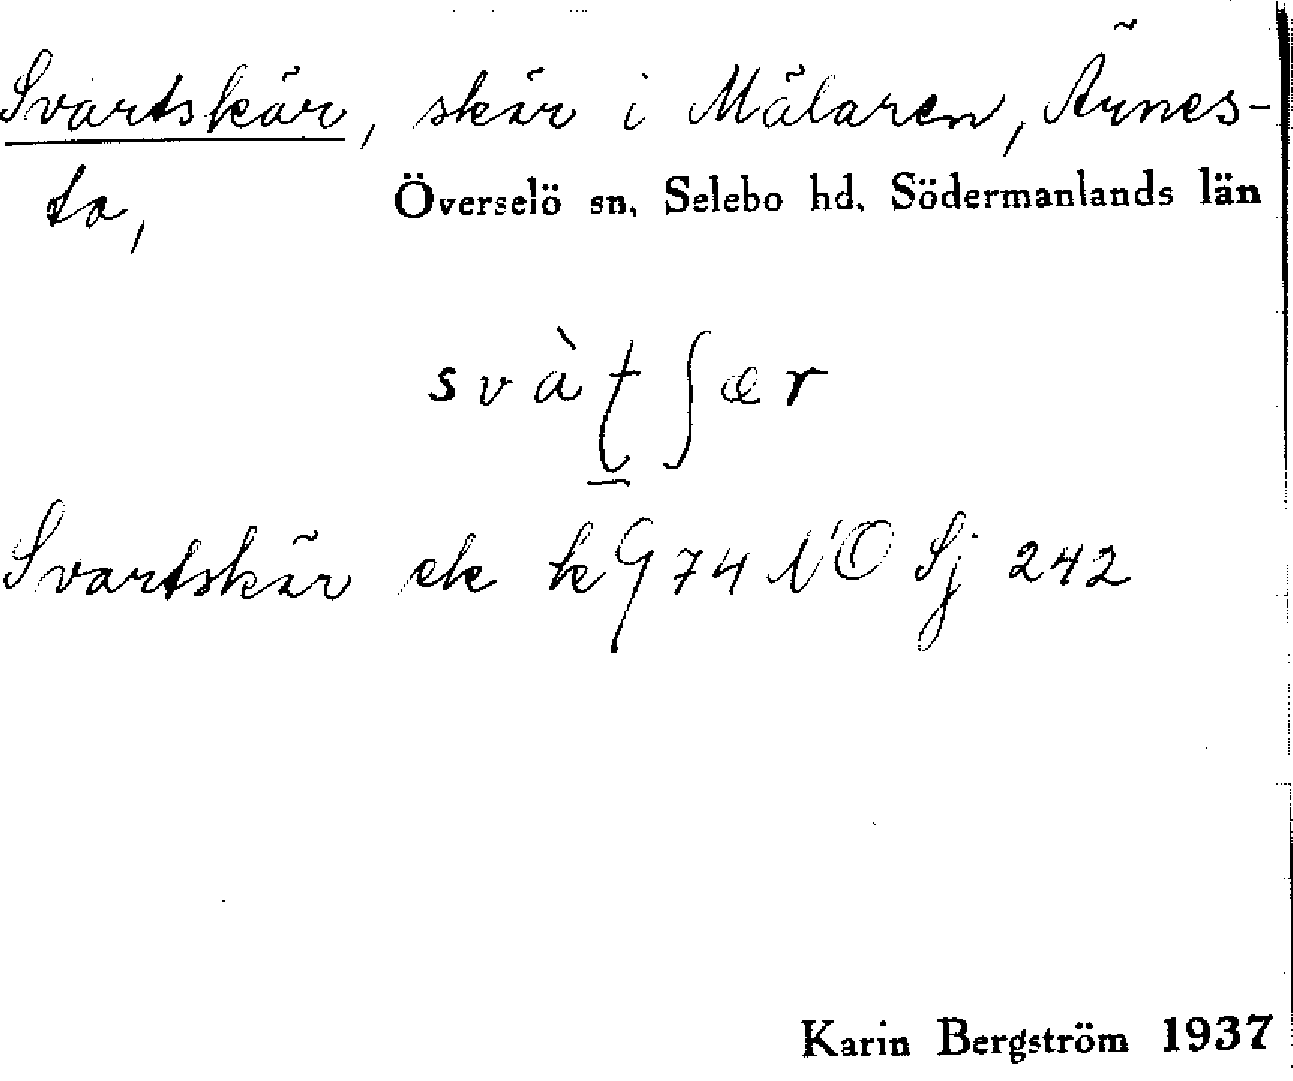 Svartskär, skär i Mälaren, Ärnes-
ta,
Överselö sn, Selebo hd, Södermanlands län
svàʈʃær
Svartskär ek kG 74 NO Sj 242
Karin Bergström 1937